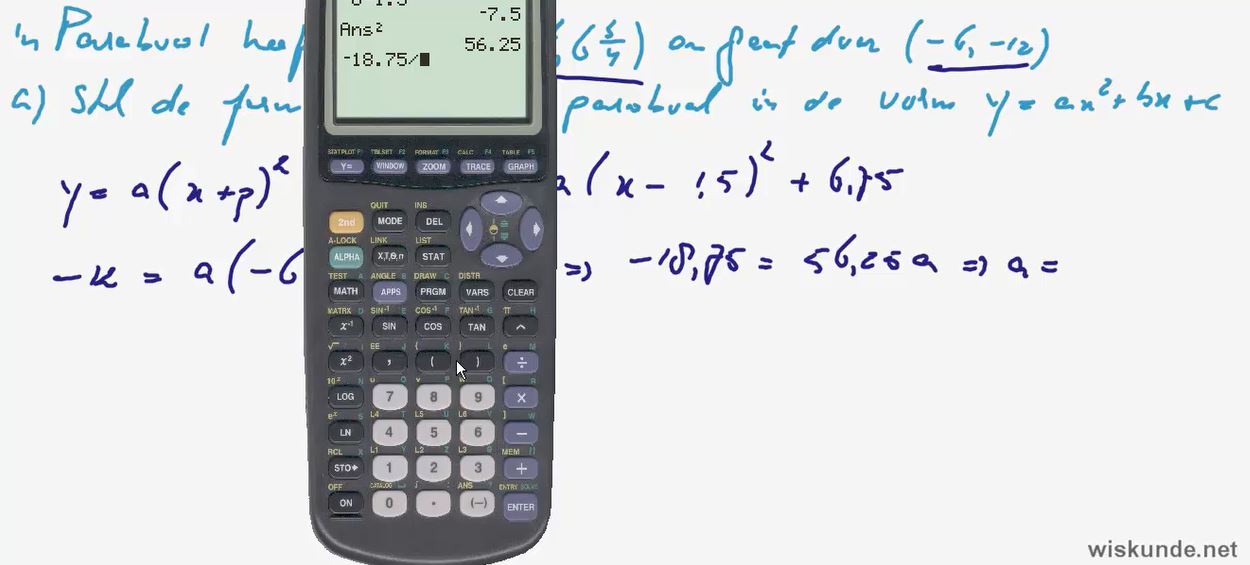 -7.5
Ans²
56.25
-18.75/
'n Parabool 6 3/4) en gaat door (-6, -12)
a) Stel de parabool in de vorm y = ax² + bx + c
y = a(x+p)² (x - 1,5)² + 6,75
-12 = a(-6 => -18,75 = 56,25a => a =
STATPLOT F1 TBLSET F2 FORMAT F3 CALC F4 TABLE F5
Y= WINDOW ZOOM TRACE GRAPH
QUIT INS
2nd MODE DEL
A-LOCK LINK LIST
ALPHA X,T,Θ,n STAT
TEST A ANGLE B DRAW C DISTR
MATH APPS PRGM VARS CLEAR
MATRX D SIN⁻¹ E COS⁻¹ F TAN⁻¹ G π H
x⁻¹ SIN COS TAN ^
√ I EE J { K } L e M
x² , ( ) ÷
10ˣ N u O v P w Q [ R
LOG 7 8 9 ×
eˣ S L4 T L5 U L6 V ] W
LN 4 5 6 −
RCL X L1 Y L2 Z L3 θ MEM "
STO➔ 1 2 3 +
OFF CATALOG i : ANS ? ENTRY SOLVE
ON 0 . (−) ENTER
wiskunde.net